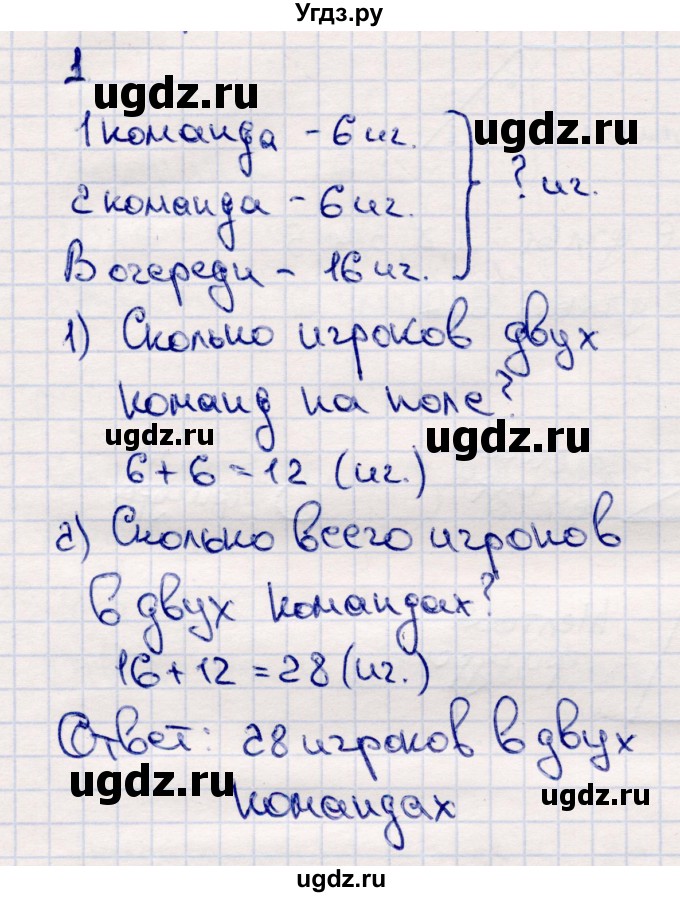 Угдз.ру
1
ugdz.ru
1 команда - 6 иг.
ugdz.ru
2 команда - 6 иг.
? иг.
В очереди - 16 иг.
1) Сколько игроков двух
команд на поле?
ugdz.ru
ugdz.ru
6 + 6 = 12 (иг.)
2) Сколько всего игроков
в двух командах?
16 + 12 = 28 (иг.)
Ответ: 28 игроков в двух
ugdz.ru
командах
ugdz.ru
ugdz.ru